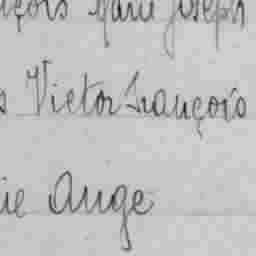 Marie Joseph
Victor François
Ange